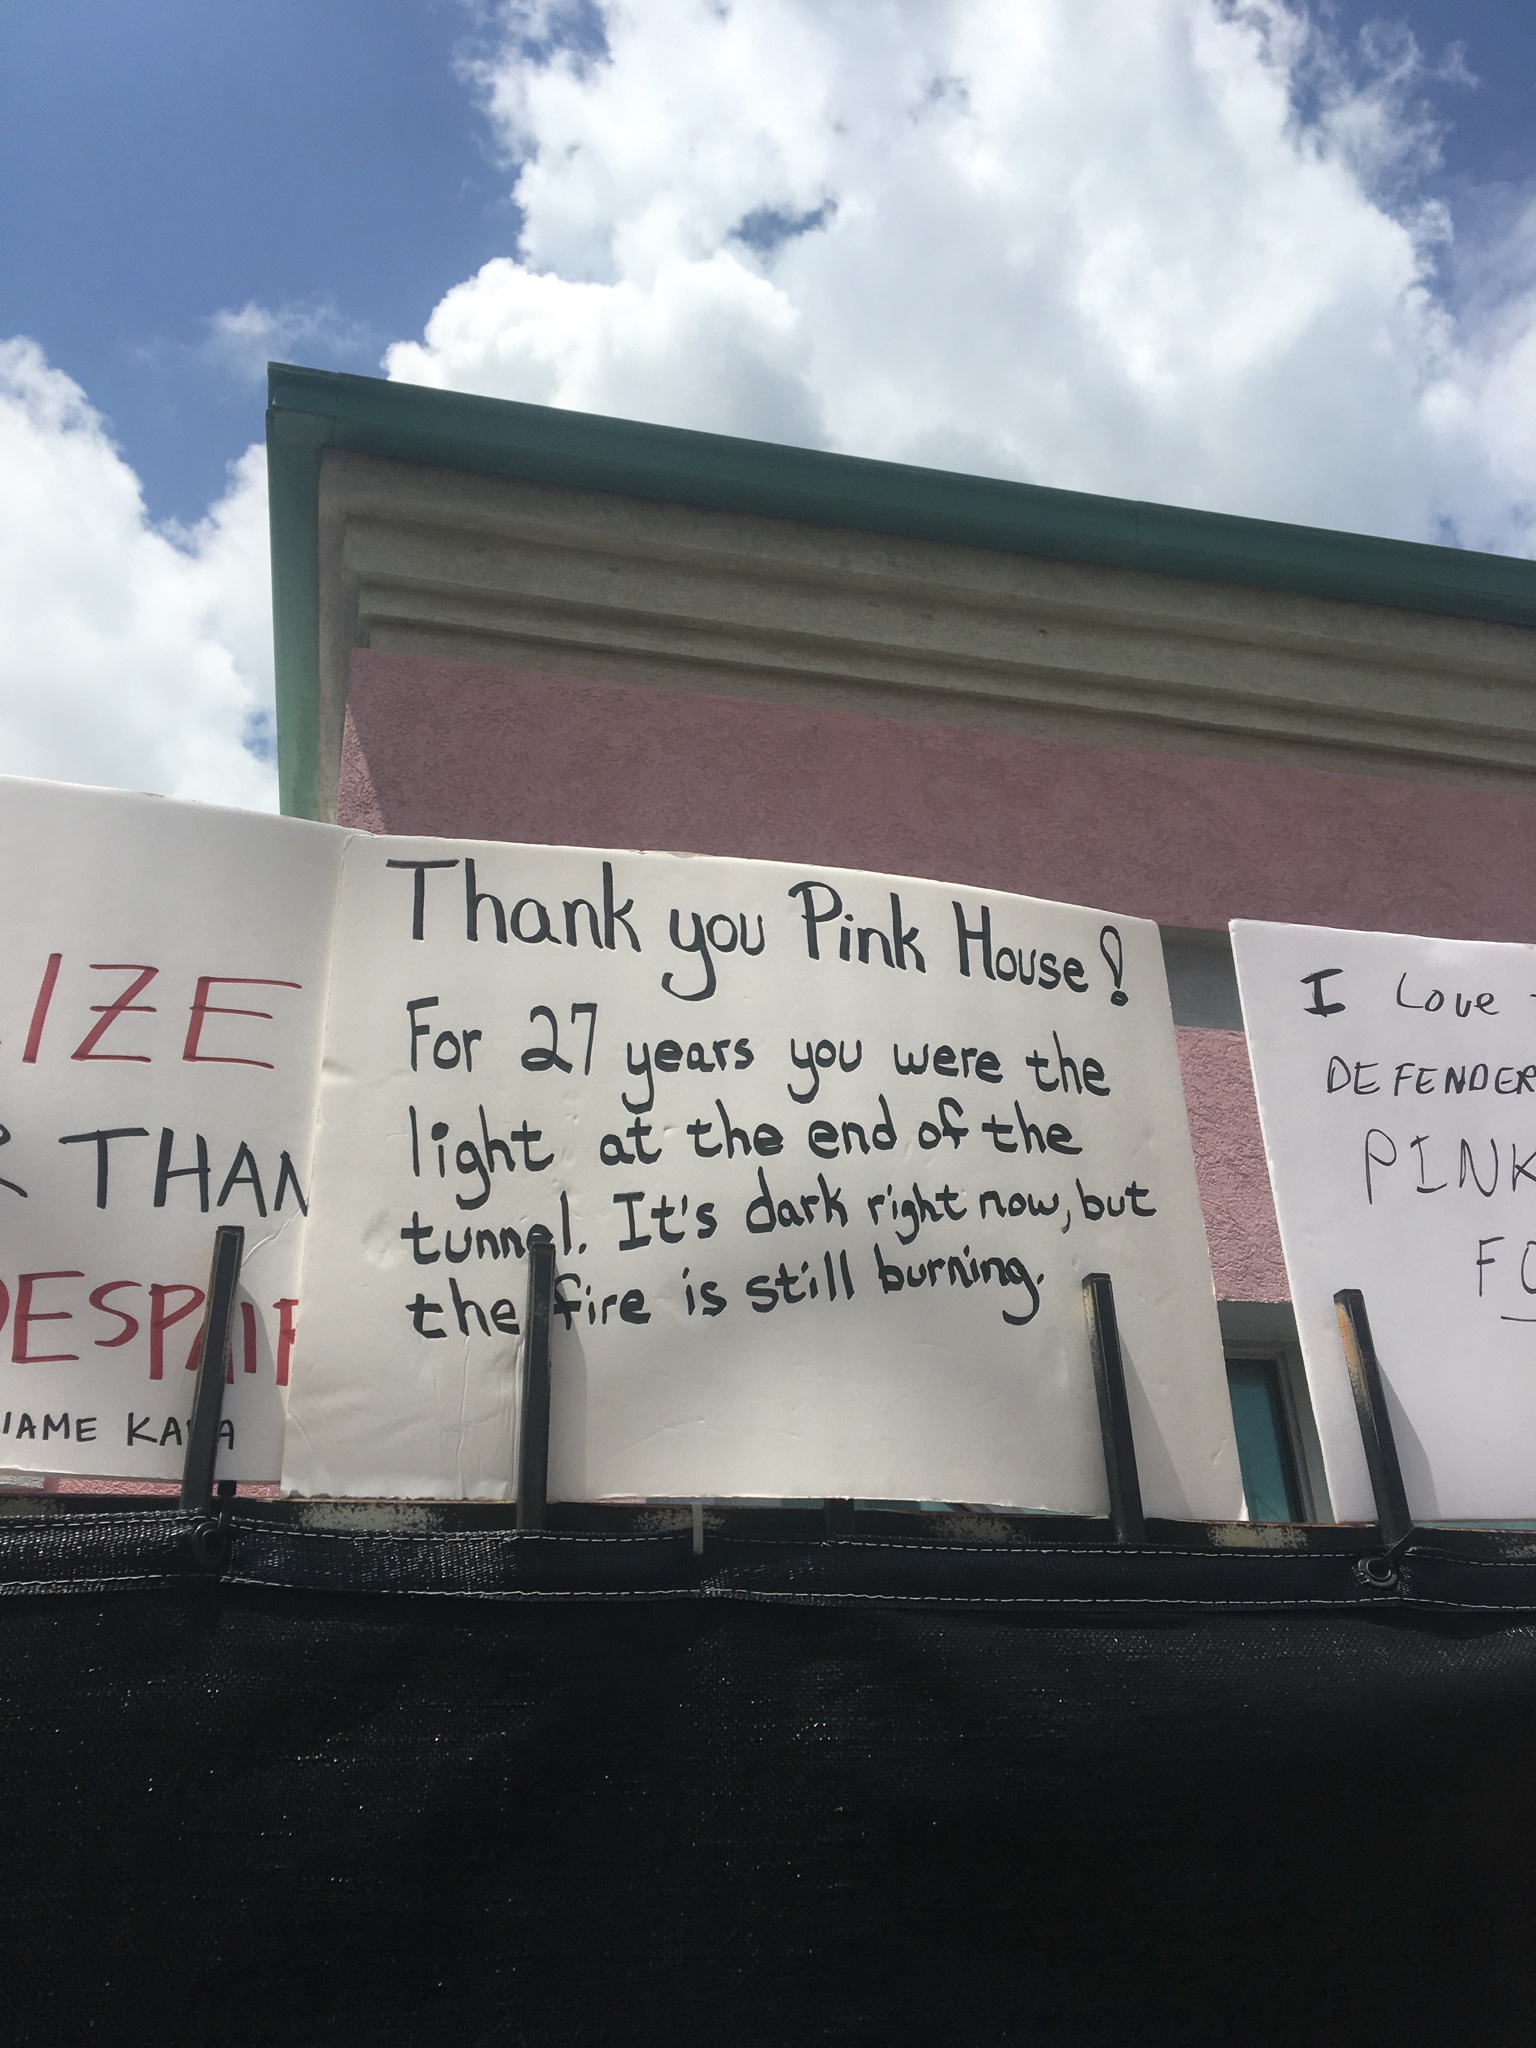 IZE
R THAN
DESPAIR
IAME KABA
Thank you Pink House!
For 27 years you were the
light at the end of the
tunnel. It's dark right now, but
the fire is still burning.
I Love
DEFENDER
PINK
FO